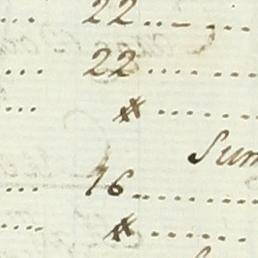 22
22
#
Sum
16
#